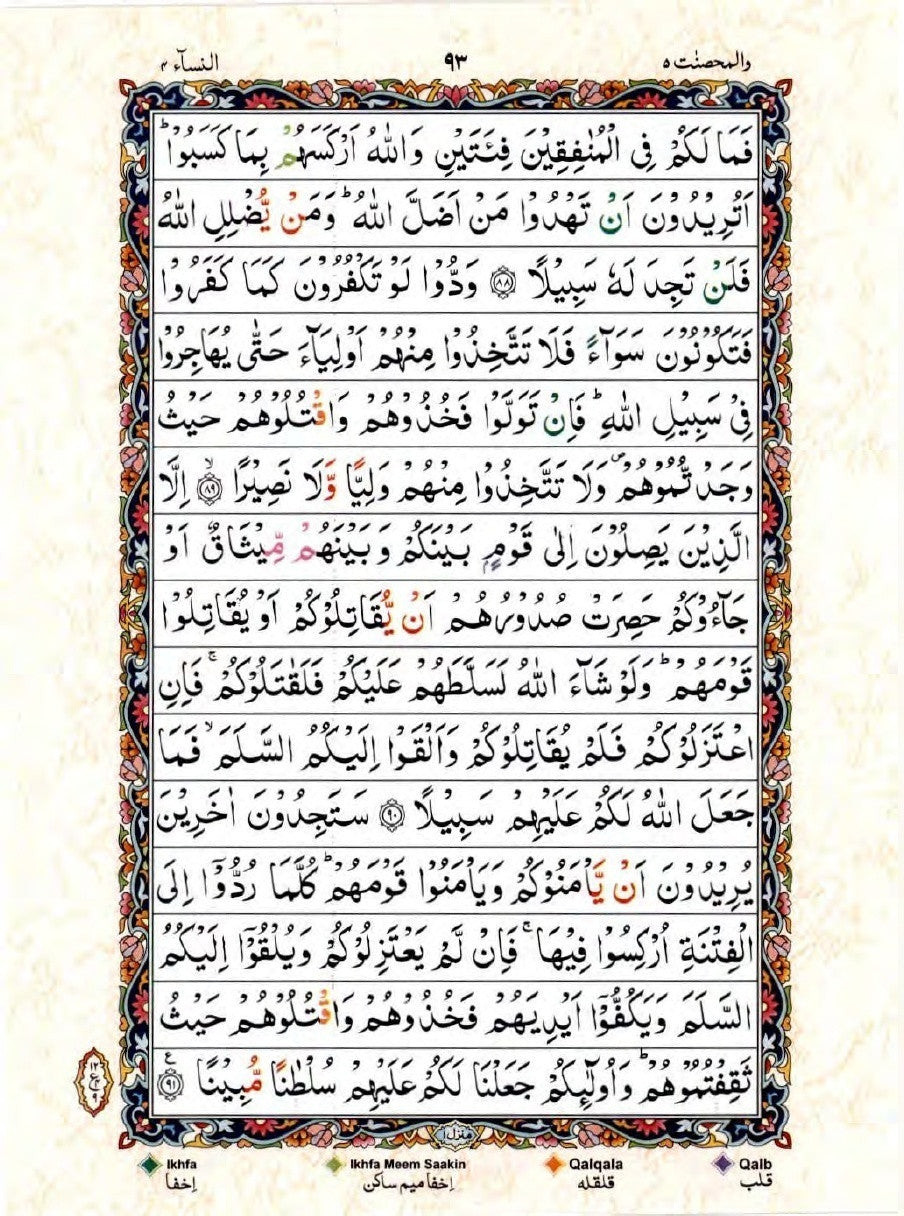 النسآء ٤ ٩٣ والمحصنٰت ٥
فَمَا لَكُمْ فِي الْمُنٰفِقِيْنَ فِئَتَيْنِ وَاللّٰهُ اَرْكَسَهُمْ بِمَا كَسَبُوْا ؕ
اَتُرِيْدُوْنَ اَنْ تَهْدُوْا مَنْ اَضَلَّ اللّٰهُ ؕ وَمَنْ يُّضْلِلِ اللّٰهُ
فَلَنْ تَجِدَ لَهٗ سَبِيْلًا ۝٨٨ وَدُّوْا لَوْ تَكْفُرُوْنَ كَمَا كَفَرُوْا
فَتَكُوْنُوْنَ سَوَآءً فَلَا تَتَّخِذُوْا مِنْهُمْ اَوْلِيَآءَ حَتّٰى يُهَاجِرُوْا
فِيْ سَبِيْلِ اللّٰهِ ؕ فَاِنْ تَوَلَّوْا فَخُذُوْهُمْ وَاقْتُلُوْهُمْ حَيْثُ
وَجَدْتُّمُوْهُمْ ۪ وَلَا تَتَّخِذُوْا مِنْهُمْ وَلِيًّا وَّلَا نَصِيْرًا ۙ۝٨٩ اِلَّا
الَّذِيْنَ يَصِلُوْنَ اِلٰى قَوْمٍۭ بَيْنَكُمْ وَبَيْنَهُمْ مِّيْثَاقٌ اَوْ
جَآءُوْكُمْ حَصِرَتْ صُدُوْرُهُمْ اَنْ يُّقَاتِلُوْكُمْ اَوْ يُقَاتِلُوْا
قَوْمَهُمْ ؕ وَلَوْ شَآءَ اللّٰهُ لَسَلَّطَهُمْ عَلَيْكُمْ فَلَقٰتَلُوْكُمْ ۚ فَاِنِ
اعْتَزَلُوْكُمْ فَلَمْ يُقَاتِلُوْكُمْ وَاَلْقَوْا اِلَيْكُمُ السَّلَمَ ۙ فَمَا
جَعَلَ اللّٰهُ لَكُمْ عَلَيْهِمْ سَبِيْلًا ۝٩٠ سَتَجِدُوْنَ اٰخَرِيْنَ
يُرِيْدُوْنَ اَنْ يَّاْمَنُوْكُمْ وَيَاْمَنُوْا قَوْمَهُمْ ؕ كُلَّمَا رُدُّوْۤا اِلَى
الْفِتْنَةِ اُرْكِسُوْا فِيْهَا ۚ فَاِنْ لَّمْ يَعْتَزِلُوْكُمْ وَيُلْقُوْۤا اِلَيْكُمُ
السَّلَمَ وَيَكُفُّوْۤا اَيْدِيَهُمْ فَخُذُوْهُمْ وَاقْتُلُوْهُمْ حَيْثُ
ثَقِفْتُمُوْهُمْ ؕ وَاُولٰٓئِكُمْ جَعَلْنَا لَكُمْ عَلَيْهِمْ سُلْطٰنًا مُّبِيْنًا ۝٩١ ع
١٢
ع
٩
منزل ١
Ikhfa Ikhfa Meem Saakin Qalqala Qalb
اِخفا اِخفا میم ساکن قلقله قلب